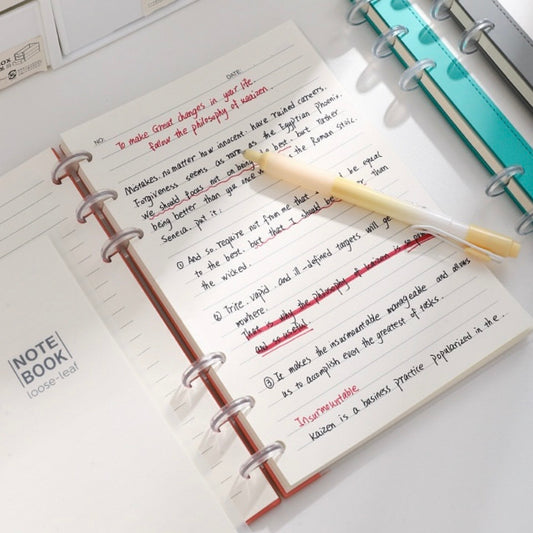 NO.
DATE.
To make Great changes in your life.
follow the philosophy of kaizen.
Mistakes. no matter how innocent. have ruined careers.
Forgiveness seems as rare as the Egyptian Phoenix.
we should focus not on being the best. but rather
being better than you once the Roman stoic.
Seneca. put it.
① And so. require not from me that I should be equal
to the best. but that I should be than
the wicked.
② Trite. vapid. and ill-defined targets will ge
nowhere.
That is why the philosophy of kaizen is so
and so useful.
③ It makes the insurmountable manageable and allows
us to accomplish even the greatest of tasks.
Insurmountable
kaizen is a business practice popularized in the...
NOTE
BOOK
loose-leaf